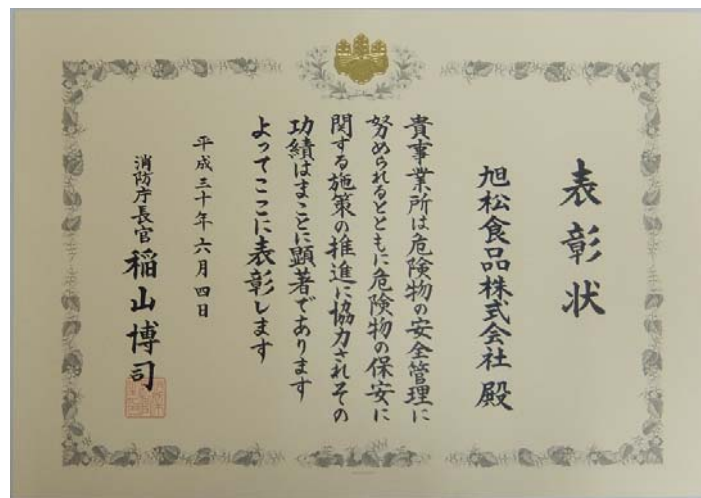 表彰状
旭松食品株式会社 殿
貴事業所は危険物の安全管理に
努められるとともに危険物の保安に
関する施策の推進に協力されその
功績はまことに顕著であります
よってここに表彰します
平成三十年六月四日
消防庁長官 稲山博司